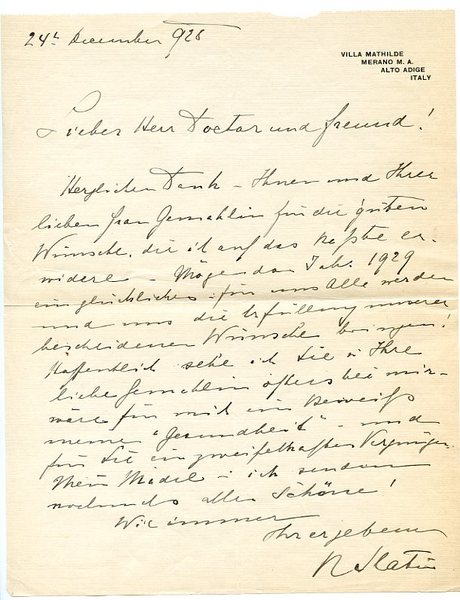 24t December 928
VILLA MATHILDE
MERANO M. A.
ALTO ADIGE
ITALY
Lieber Herr Doctor und Freund!
Herzlichen Dank – Ihnen und Ihrer
lieben Frau Gemahlin für die guten
Wünsche, die ich auf das beste er-
widere – Möge das Jahr 1929
ein glückliches für uns Alle werden
und uns die Erfüllung unserer
bescheidenen Wünsche bringen!
Hoffentlich sehe ich Sie u Ihre
liebe Gemahlin öfters bei mir –
wäre für mich ein Beweiß
meiner "Gesundheit" – und
für Sie ein zweifelhaftes Vergnügen
Mein Madel u ich senden
nochmals alles Schöne!
Wie immer
Ihr ergebener
R Slatin